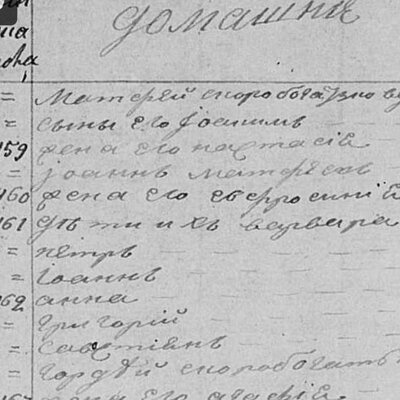 домашні
= Матфей скоробогатко
= сынъ его Іоакимъ
159 жена его настасія
= Іоаннъ матфеевъ
160 жена его евфросинія
161 дѣти ихъ варвара
= петръ
= Іоаннъ
162 анна
= григорій
= савстіянъ
= гордѣй скоробогать
жена его агафія